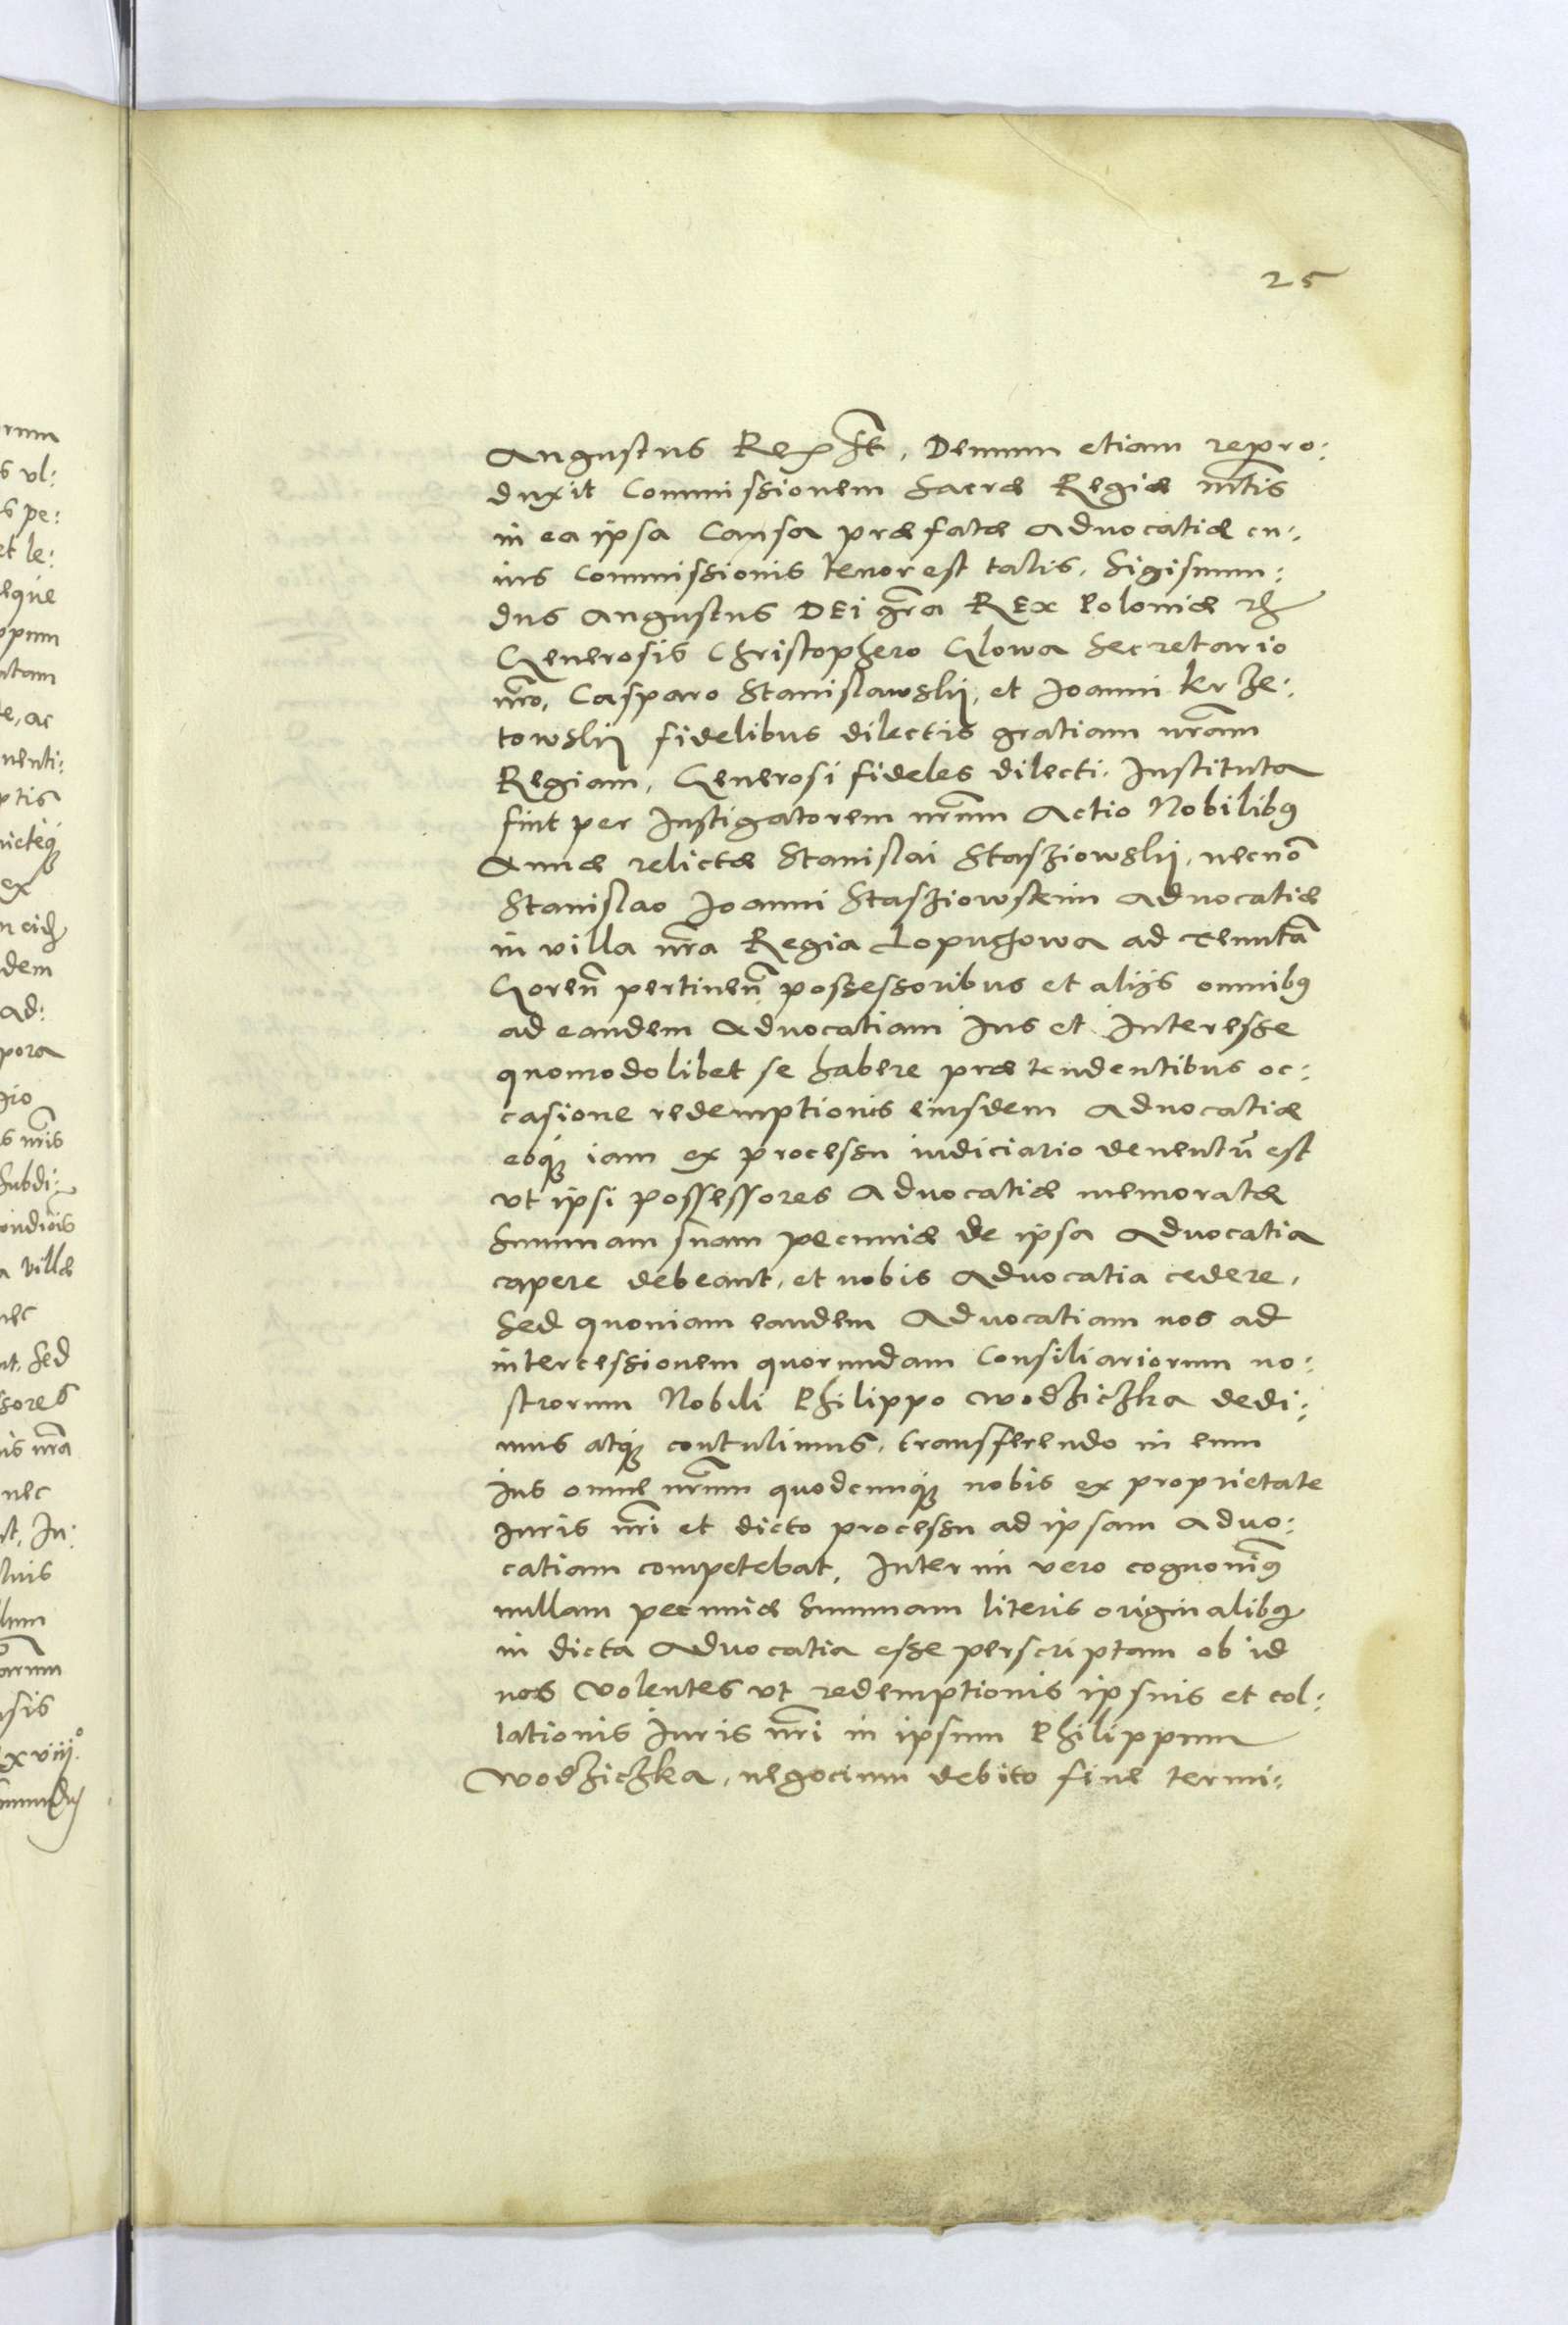 25
Augustus Rex sst, Demum etiam repro:
duxit Commissionem Sacræ Regiæ mtis
in ea ipsa Causa præfatæ Advocatiæ cu:
ius Commissionis tenor est talis, Sigismun:
dus Augustus DEi gra REx Poloniæ etc
Generosis Christophero Glowa Secretario
nro, Casparo Stanislawskij, et Joanni krze:
towskij fidelibus dilectis gratiam nram
Regiam, Generosi fideles dilecti. Instituta
fuit per Instigatorem nrum Actio Nobilibus
Annæ relictæ Stanislai Stasziowskij, necno
Stanislao Joanni Stasziowskim Advocatiæ
in villa nra Regia Lopuchowa ad Tenuta
Goren pertinen possessoribus et alijs omnibus
ad eandem Advocatiam Jus et Interesse
quomodolibet se habere prætendentibus oc:
casione redemptionis eiusdem Advocatiæ
eoque iam ex processu iudiciario deventu est
vt ipsi possessores Advocatiæ memoratæ
Summam suam pecuniæ de ipsa Advocatia
capere debeant, et nobis Advocatia cedere,
Sed quoniam eandem Advocatiam nos ad
intercessionem quorundam Consiliariorum no:
strorum Nobili Philippo Wodziczka dedi:
mus atque contulimus, transferendo in eum
Jus omne nrum quodcunque nobis ex proprietate
Juris nri et dicto processu ad ipsam Advo:
catiam competebat, Interim vero cognovimus
nullam pecuniæ Summam literis originalibus
in dicta Advocatia esse perscriptam ob id
nos Volentes vt redemptionis ipsius et col:
lationis Juris nri in ipsum Philippum
Wodziczka, negocium debito fine termi: